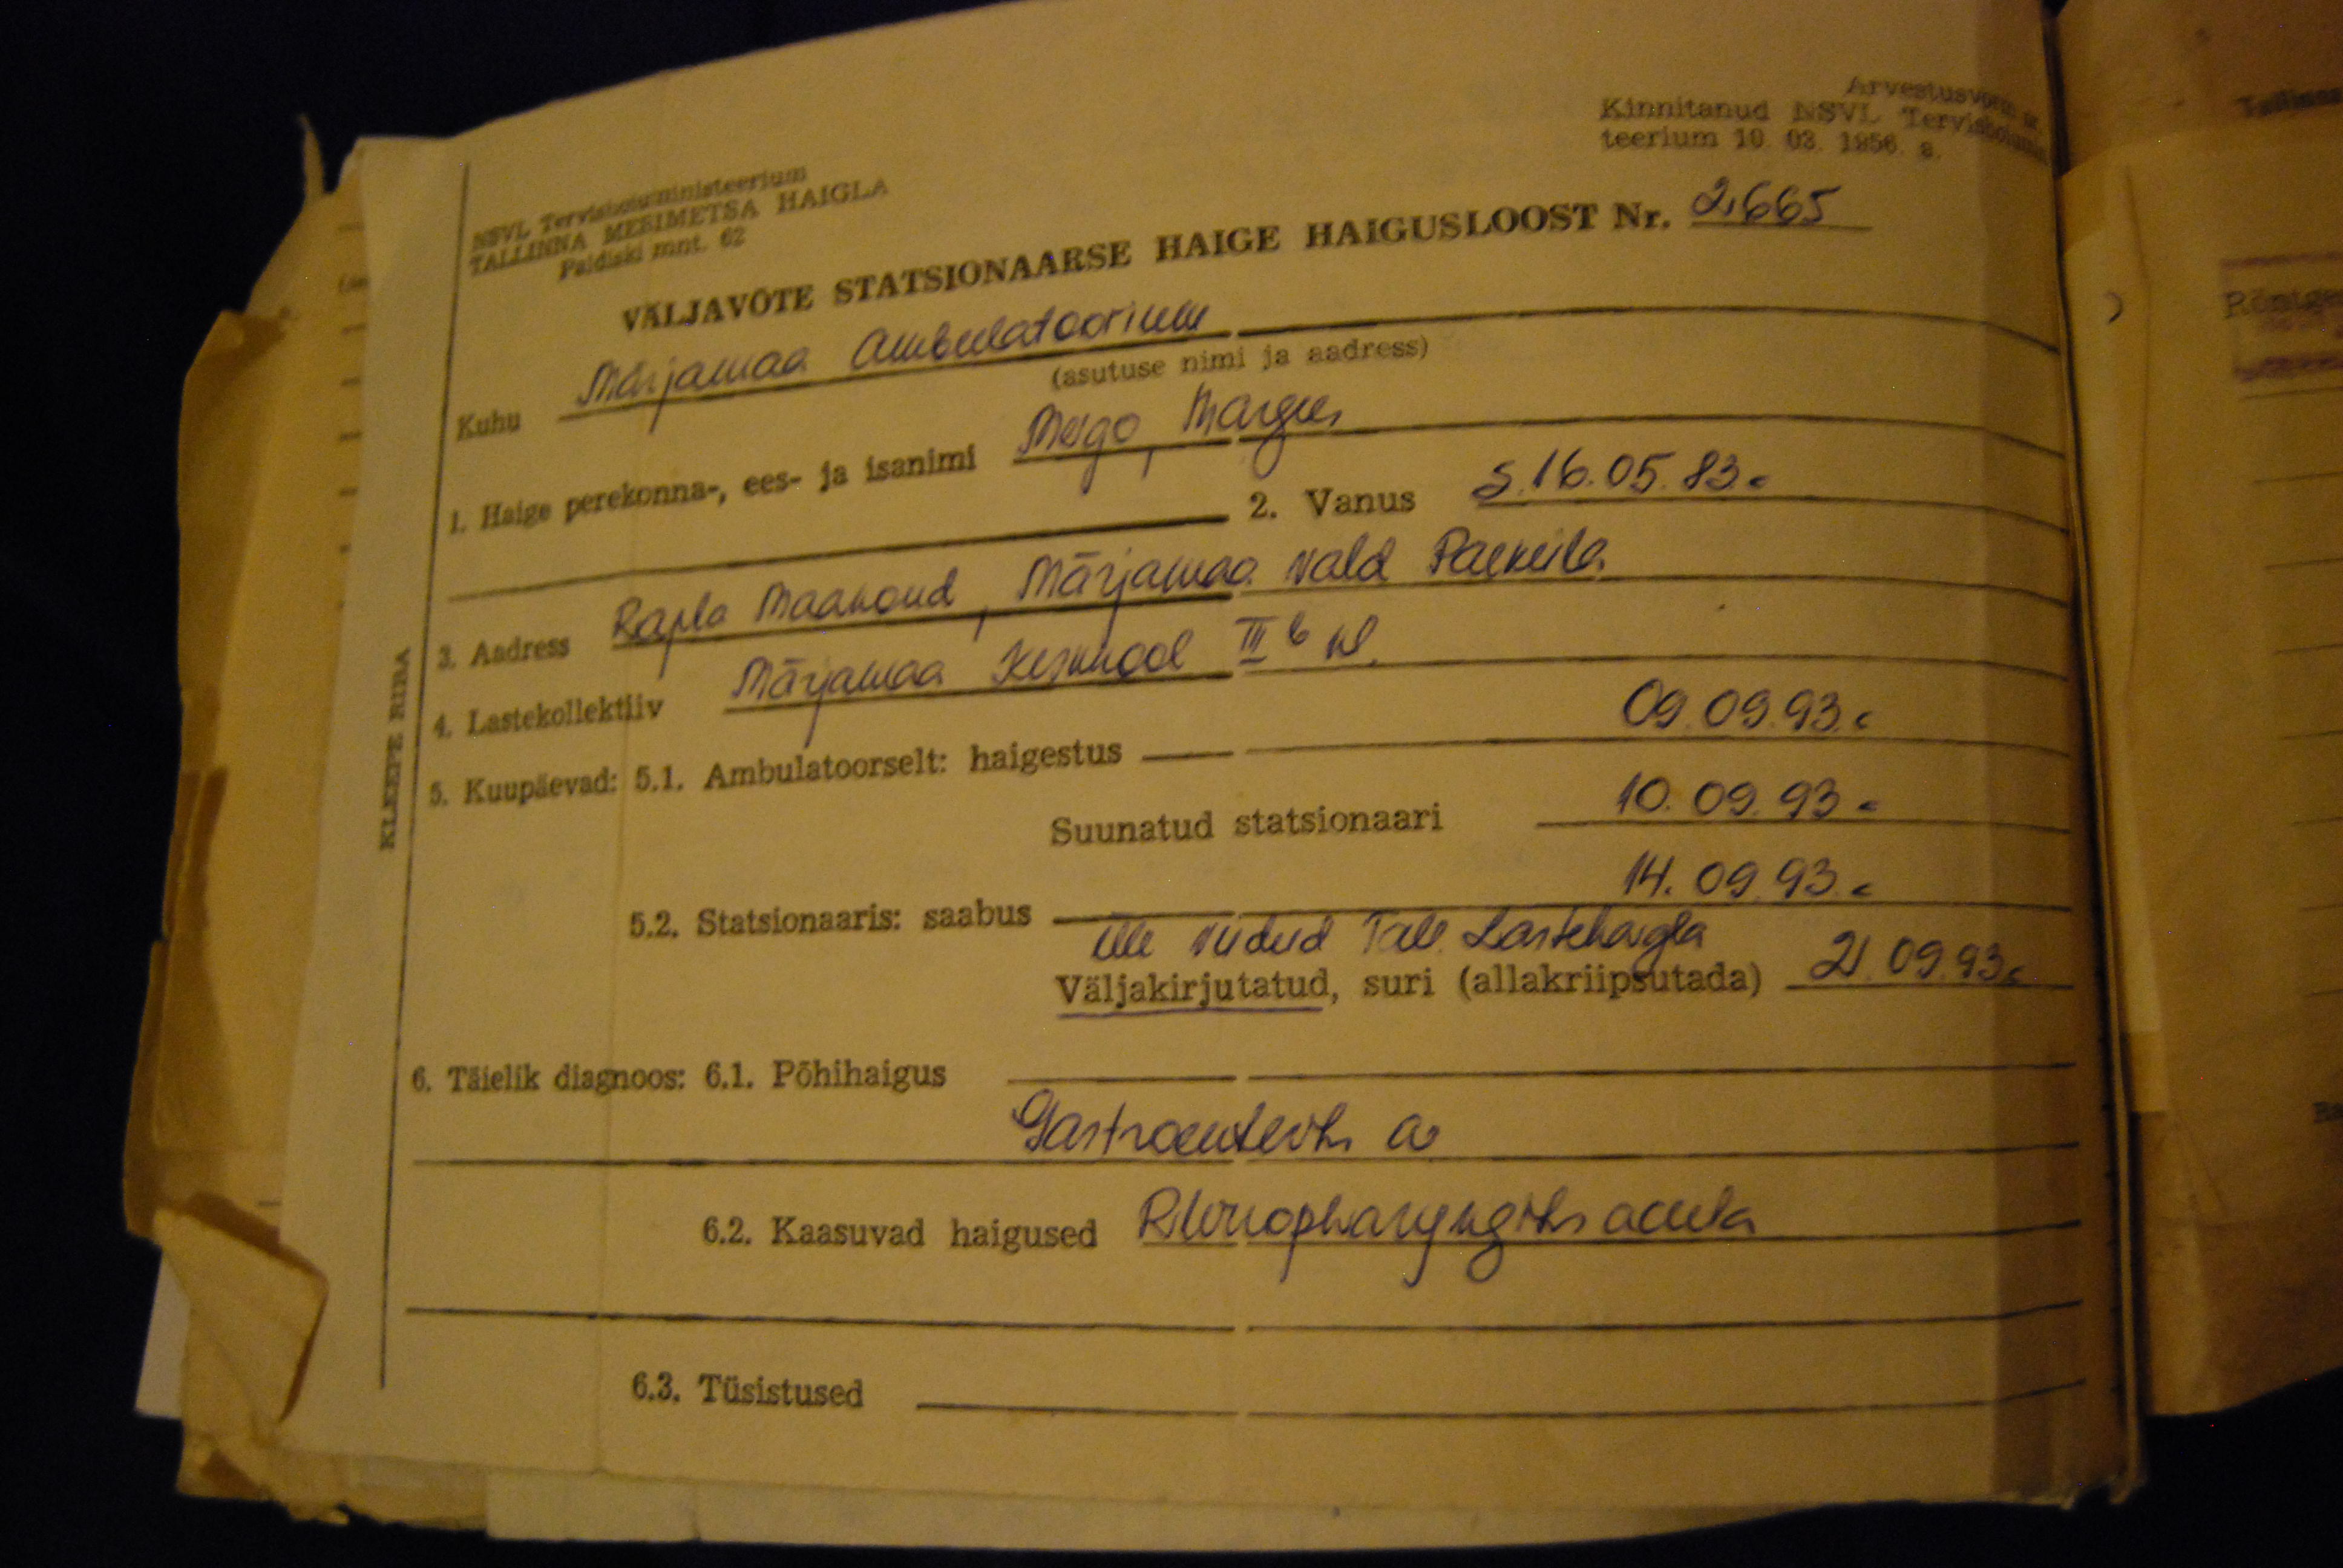 Arvestusvorm nr.
Kinnitanud NSVL Tervishoiuminis-
teerium 10. 03. 1956. a.
NSVL Tervishoiuministeerium
TALLINNA MERIMETSA HAIGLA
Paldiski mnt. 62
VÄLJAVÕTE STATSIONAARSE HAIGE HAIGUSLOOST Nr. 2665
Kuhu Märjamaa Ambulatoorium
(asutuse nimi ja aadress)
1. Haige perekonna-, ees- ja isanimi Meigo, Margus
2. Vanus s. 16.05.83.
3. Aadress Rapla Maakond, Märjamaa vald Paeküla
4. Lastekollektiiv Märjamaa Keskkool III b kl.
5. Kuupäevad: 5.1. Ambulatoorselt: haigestus 09.09.93.
Suunatud statsionaari 10.09.93.
5.2. Statsionaaris: saabus 14.09.93.
üle viidud Tall. Lastehaigla
Väljakirjutatud, suri (allakriipsutada) 21.09.93.
6. Täielik diagnoos: 6.1. Põhihaigus
Gastroenteritis a
6.2. Kaasuvad haigused Rhinopharyngitis acuta
6.3. Tüsistused
KLEEPE RIRA
Tallinna
Röntge